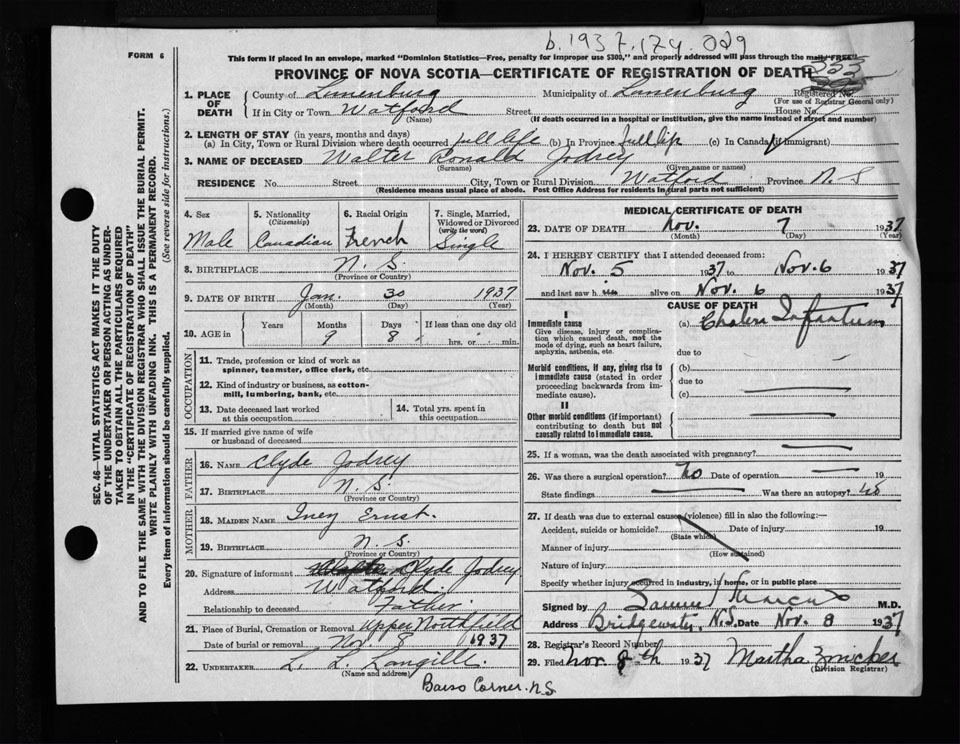 b. 1937. 179. 029
FORM 6
This form if placed in an envelope, marked "Dominion Statistics—Free, penalty for improper use $300," and properly addressed will pass through the mail "FREE"
PROVINCE OF NOVA SCOTIA—CERTIFICATE OF REGISTRATION OF DEATH
Registered No.
(For use of Registrar General only)
1. PLACE OF DEATH County of Lunenburg Municipality of Lunenburg
If in City or Town Watford Street House No.
(Name) (If death occurred in a hospital or institution, give the name instead of street and number)
2. LENGTH OF STAY (in years, months and days)
(a) In City, Town or Rural Division where death occurred full life (b) In Province full life (c) In Canada (if immigrant)
3. NAME OF DECEASED Walter Ronald Jodrey
(Surname) (Given name or names)
RESIDENCE No. Street City, Town or Rural Division Watford Province N S
(Residence means usual place of abode. Post Office Address for residents in rural parts not sufficient)
SEC. 46—VITAL STATISTICS ACT MAKES IT THE DUTY
OF THE UNDERTAKER OR PERSON ACTING AS UNDER-
TAKER TO OBTAIN ALL THE PARTICULARS REQUIRED
IN THE "CERTIFICATE OF REGISTRATION OF DEATH"
AND TO FILE THE SAME WITH THE DIVISION REGISTRAR WHO SHALL ISSUE THE BURIAL PERMIT.
WRITE PLAINLY WITH UNFADING INK. THIS IS A PERMANENT RECORD.
Every item of information should be carefully supplied. (See reverse side for instructions.)
4. Sex Male
5. Nationality (Citizenship) Canadian
6. Racial Origin French
7. Single, Married, Widowed or Divorced (write the word) Single
8. BIRTHPLACE N. S.
(Province or Country)
9. DATE OF BIRTH Jan. 30 1937
(Month) (Day) (Year)
10. AGE in Years Months Days If less than one day old
9 8 hrs. or min.
OCCUPATION
11. Trade, profession or kind of work as
spinner, teamster, office clerk, etc.
12. Kind of industry or business, as cotton-
mill, lumbering, bank, etc.
13. Date deceased last worked
at this occupation
14. Total yrs. spent in
this occupation
15. If married give name of wife
or husband of deceased
FATHER
16. NAME Clyde Jodrey
17. BIRTHPLACE N. S.
(Province or Country)
MOTHER
18. MAIDEN NAME Iney Ernst.
19. BIRTHPLACE N. S.
(Province or Country)
20. Signature of informant Clyde Jodrey
Address Watford
Relationship to deceased Father
21. Place of Burial, Cremation or Removal Upper Northfield
Date of burial or removal Nov. 8 1937
22. UNDERTAKER L. L. Langille.
(Name and address)
Barss Corner. N.S.
MEDICAL CERTIFICATE OF DEATH
23. DATE OF DEATH Nov. 7 1937
(Month) (Day) (Year)
24. I HEREBY CERTIFY that I attended deceased from:
Nov. 5 1937 to Nov. 6 1937
and last saw him alive on Nov. 6 1937
CAUSE OF DEATH
I
Immediate cause (a) Cholera Infantum
Give disease, injury or complica-
tion which caused death, not the
mode of dying, such as heart failure,
asphyxia, asthenia, etc.
due to
Morbid conditions, if any, giving rise to
immediate cause (stated in order
proceeding backwards from im-
mediate cause).
(b)
due to
(c)
II
Other morbid conditions (if important)
contributing to death but not
causally related to immediate cause.
25. If a woman, was the death associated with pregnancy?
26. Was there a surgical operation? no Date of operation 19
State findings Was there an autopsy?
27. If death was due to external causes (violence) fill in also the following:—
Accident, suicide or homicide? Date of injury 19
(State which)
Manner of injury
(How sustained)
Nature of injury
Specify whether injury occurred in industry, in home, or in public place
Signed by Samuel Marcus M.D.
Address Bridgewater, N.S. Date Nov. 8 1937
28. Registrar's Record Number
29. Filed Nov. 8th 1937 Martha Zwicker
(Division Registrar)